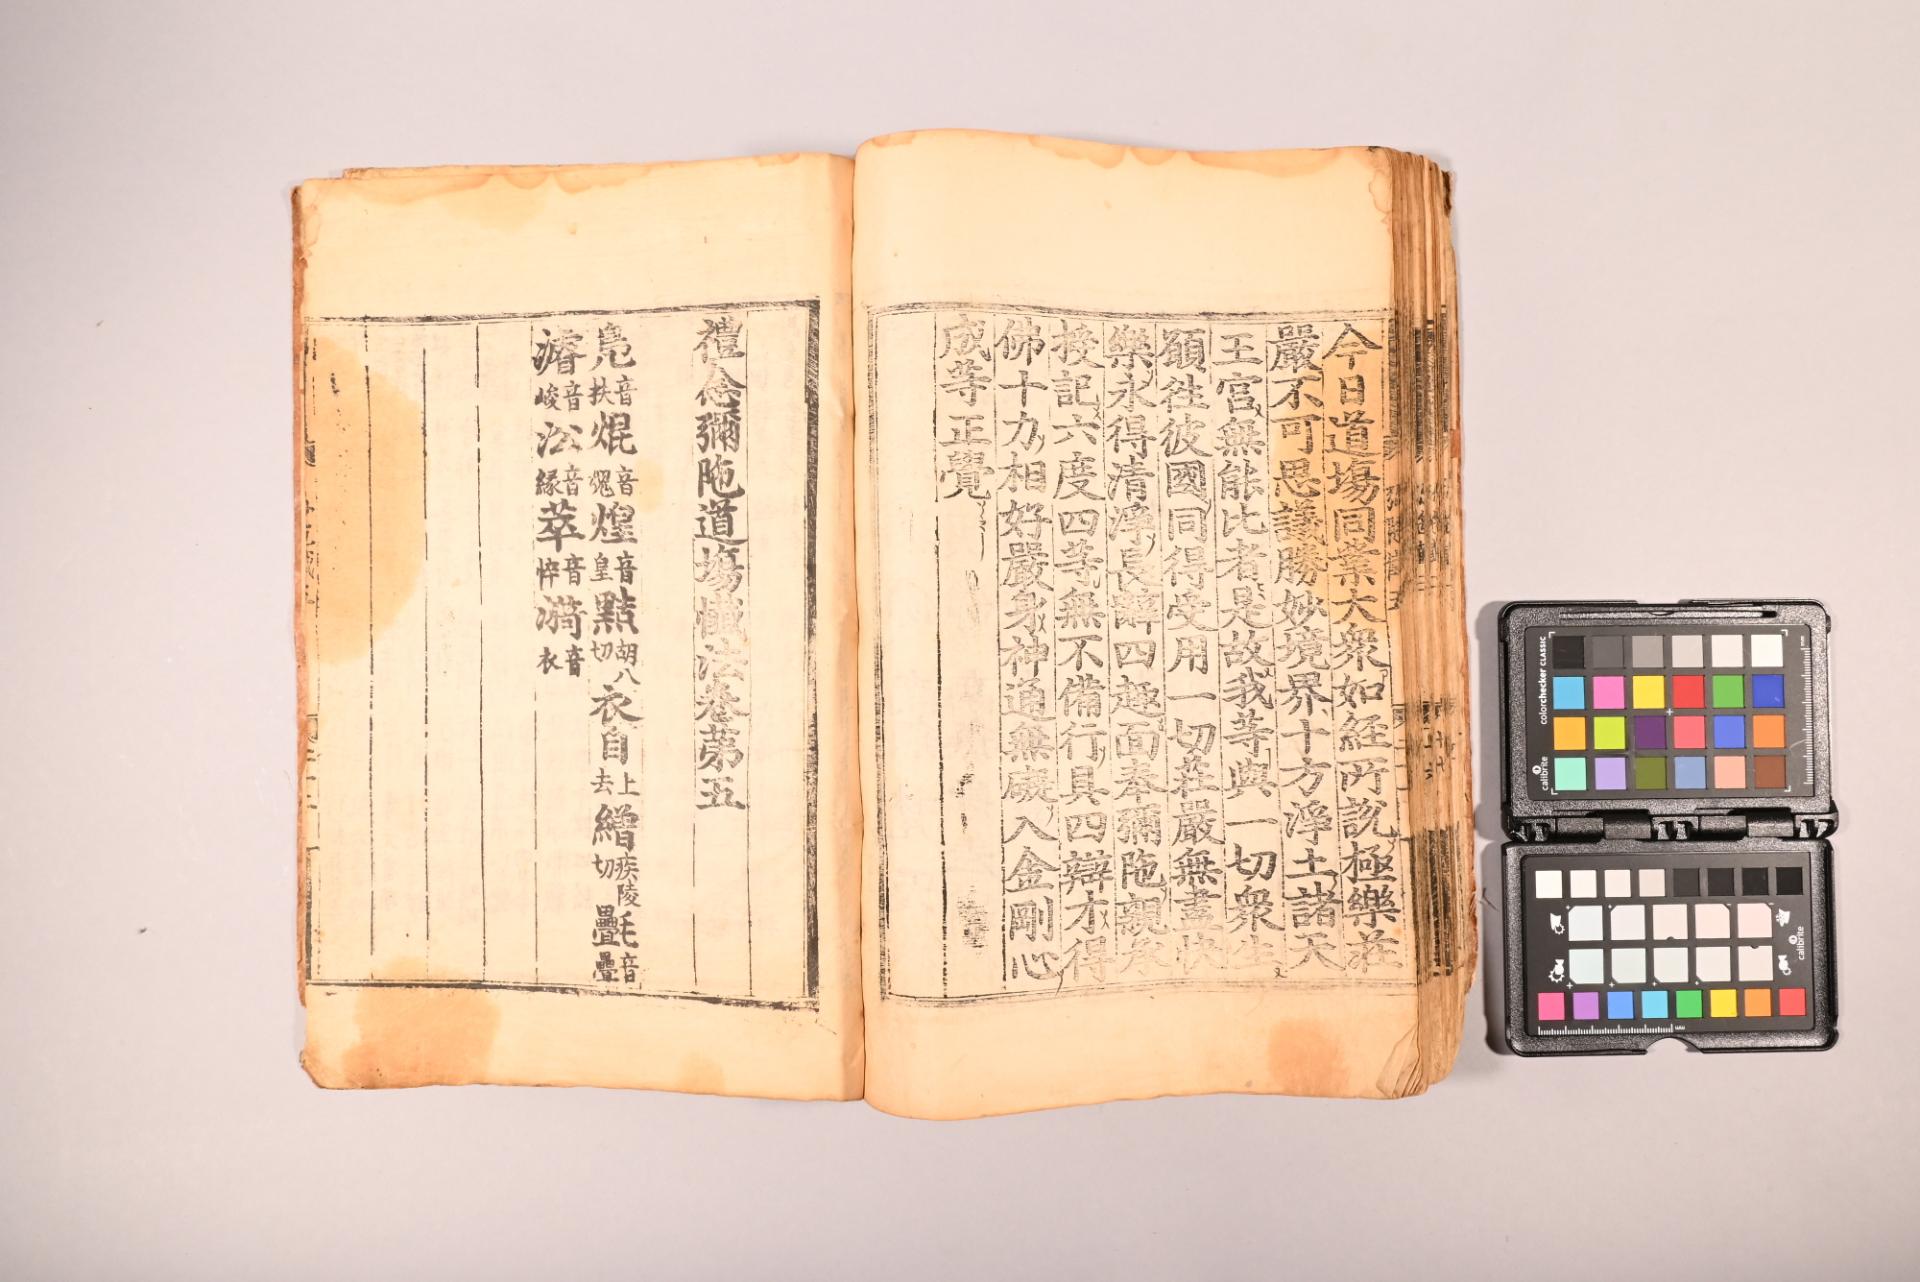 今日道場同業大衆如經所說極樂莊
嚴不可思議勝妙境界十方淨土諸天
王宮無能比者是故我等與一切衆生
願往彼國同得受用一切莊嚴無盡快
樂永得清淨長辭四趣面奉彌陁親承
授記六度四等無不備行具四辯才得
佛十力相好嚴身神通無礙入金剛心
成等正覺
禮念彌陁道場懺法卷第五
鳧音扶焜音䰟煌音皇點胡八切衣自上去繒疾陵切㲲音疊
濬音峻㳂音緣萃音悴漪音衣
colorchecker CLASSIC
calibrite
calibrite